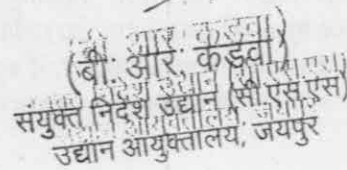 (बी. आर. कडवा)
संयुक्त निदेश उद्यान (सी एस एस)
उद्यान आयुक्तालय, जयपुर